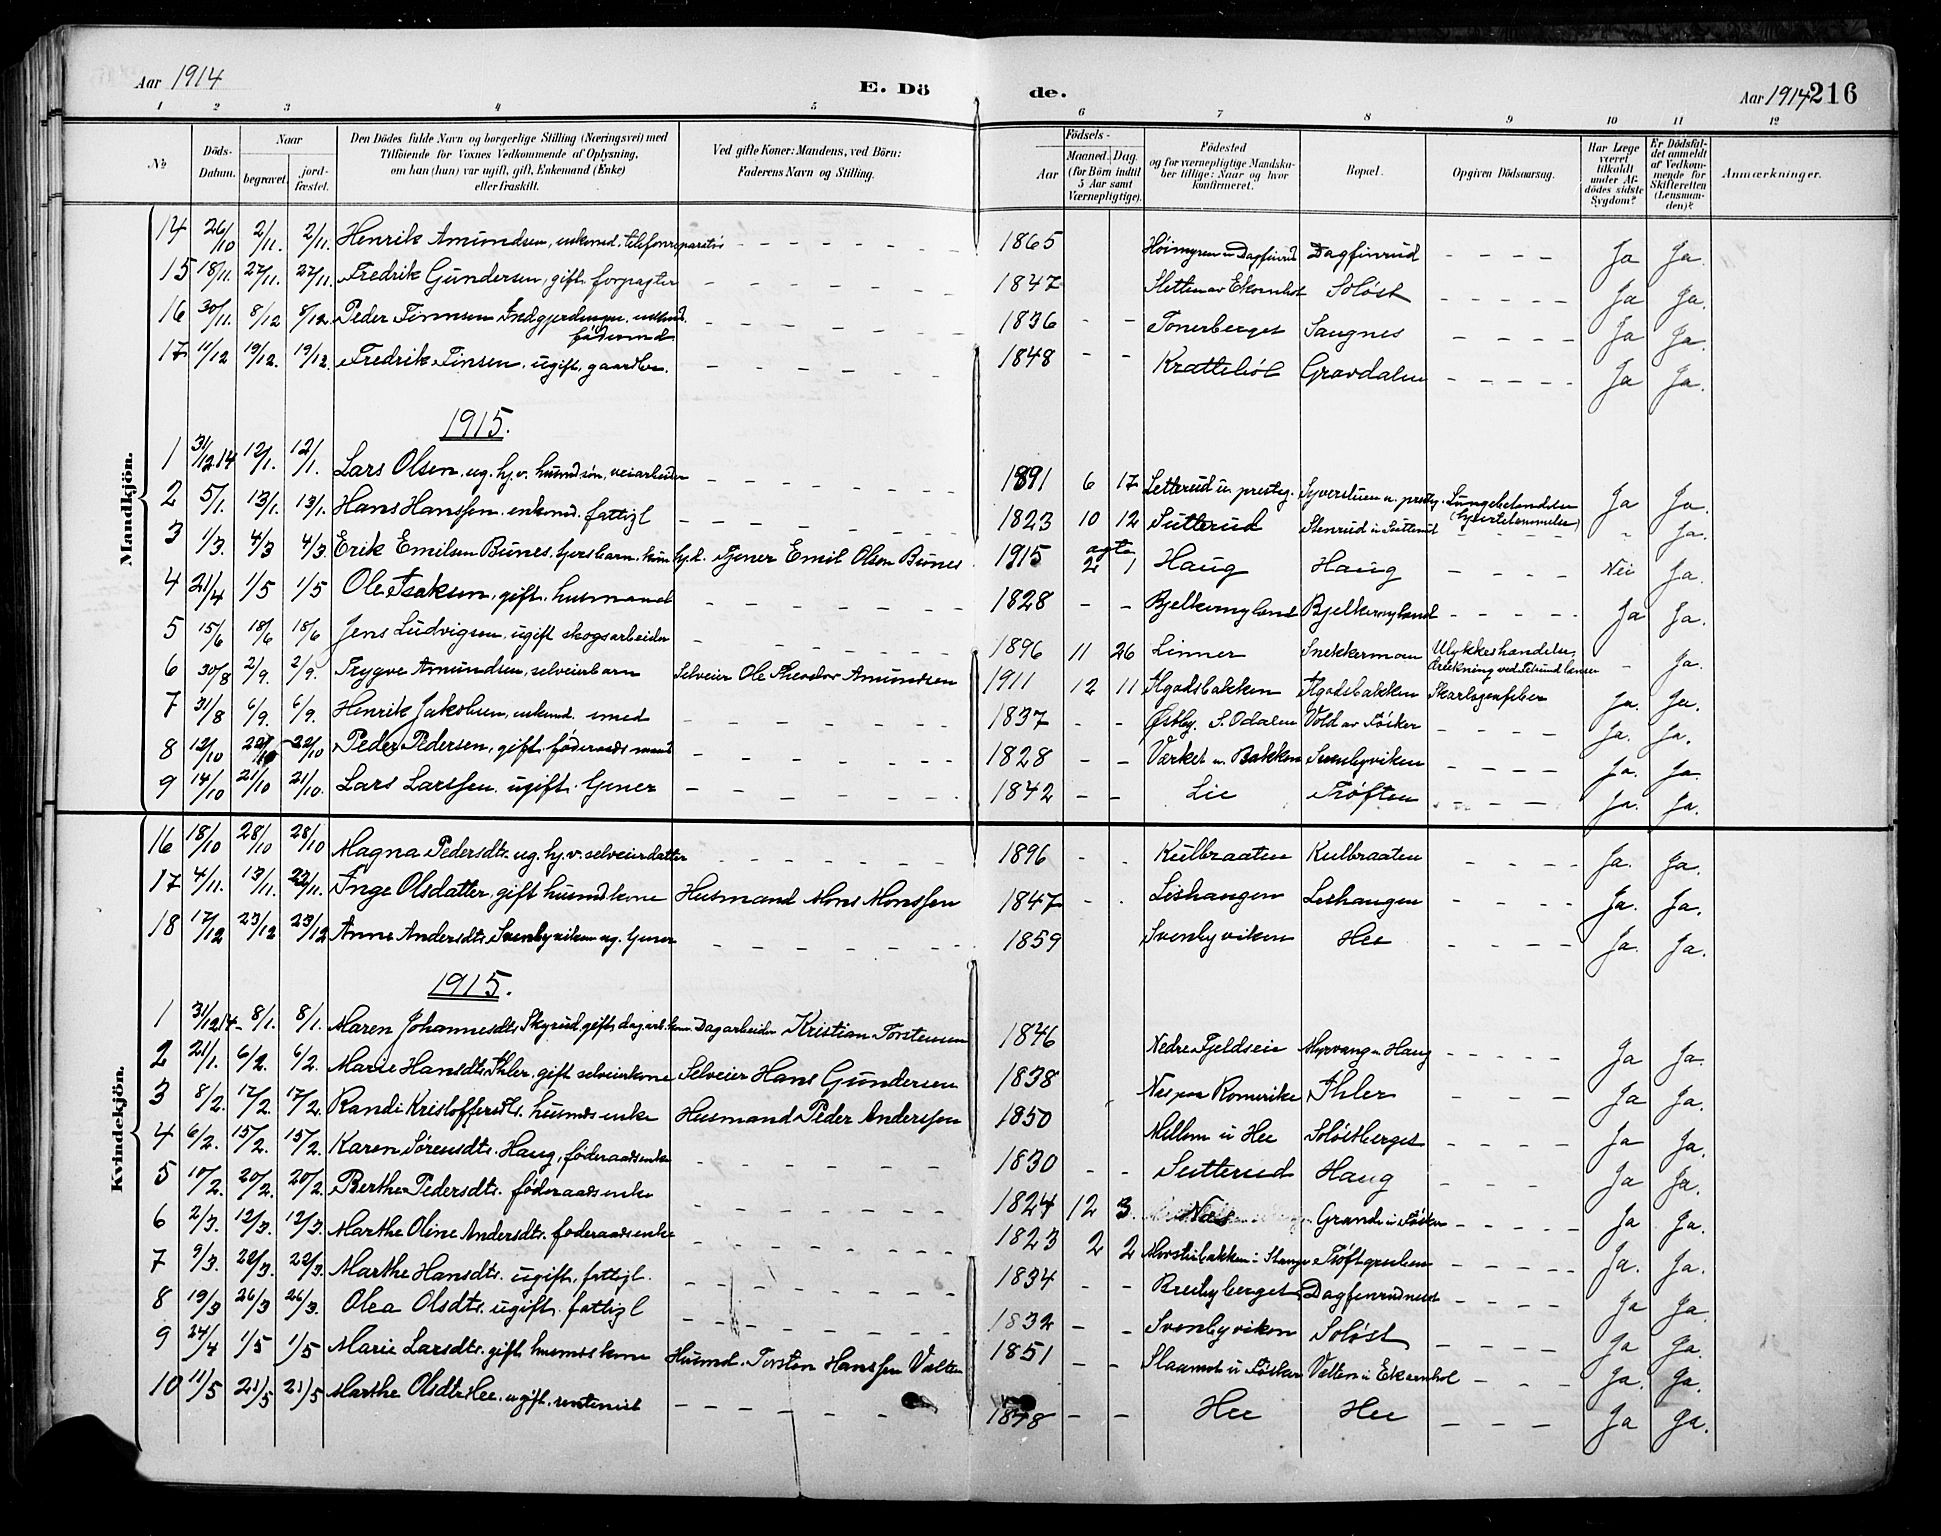 Aar 1914 E. Dö de. Aar 1914 216
1 2 3 4 5 6 7 8 9 10 11 12
No Döds-Datum. Naar begravet. jord-fæstet. Den Dödes fulde Navn og borgerlige Stilling (Næringsvei) med Tilföiende for Voxnes Vedkommende af Oplysning, om han (hun) var ugift, gift, Enkemand (Enke) eller fraskilt. Ved gifte Koner: Mandens, ved Börn: Faderens Navn og Stilling. Födsels- Aar Maaned. Dag. (for Börn indtil 5 Aar samt Værnepligtige). Födested og for værnepligtige Mandskaber tillige: Naar og hvor konfirmeret. Bopæl. Opgiven Dödsaarsag. Har Læge været tilkaldt under Afdödes sidste Sygdom? Er Dödsfaldet anmeldt af Vedkommende for Skifteretten (Lensmanden)? Anmærkninger.
Mandkjön.
14 26/10 2/11. 2/11. Henrik Amundsen, enkemd. telefonreparatör 1865 Höimyren u Dagfinrud Dagfinrud Ja Ja.
15 18/11. 27/11. 27/11. Fredrik Gundersen, gift. forpagter 1847 Sletten av Ekornhol Soløst Ja Ja.
16 30/11. 8/12 8/12 Peder Finnsen föderaad 1836 Tonerberget Saugnes Ja Ja.
17 11/12 19/12. 19/12. Fredrik Finsen, ugift, gaardbr. 1848 Krattebøl Gravdalen Ja Ja.
1915.
1 31/12 14 12/1. 12/1. Lars Olsen, ug. hj.v. husmd.søn, veiarbeider 1891 6 17 Setterud u. presteg. Ja Ja.
2 5/1. 13/1. 13/1. Hans Hanssen. enkemd. fattigl 1823 10 12 Sutterud Stenrud u Sutterud " Ja.
3 1/3. 4/3 4/3 Erik Emilsen Bunes, Tjener Emil Olsen Bunes 1915 2 1 Haug Haug Nei Ja.
4 21/4 1/5 1/5 Ole Isaksen, gift. husmand 1828 Bjelkemyland Bjelkemyland Ja Ja.
5 15/6 18/6 18/6 Jens Ludvigsen, ugift skogsarbeider 1896 11 26 Linner Snekkermoen Ulykkeshændelse, Ja.
6 30/8 2/9. 2/9. Trygve Amundsen, selveierbarn Selveier Ole Theodor Amundsen 1911 12 11 Agodsbakken Agodsbakken Skarlagensfeber Ja. Ja.
7 31/8 6/9. 6/9. Henrik Jakobsen, enkemd. smed 1837 Østby. S. Odalen Vold av Fösker Ja. Ja.
8 12/10 22/10 22/10 Peder Pedersen, gift. föderaadsmand 1828 Værket u. Bakken Svenbyviken Ja. Ja.
9 14/10 21/10 21/10. Lars Larssen. ugift. tjener 1842 Lie Trøften Ja. Ja.
Kvindekjön.
16 18/10 28/10 28/10 Magna Pedersdtr. ug. hj.v. selveierdatter 1896 Kulbraaten Kulbraaten Ja. Ja.
17 4/11. 13/11. 22/11. Inge Olsdatter, gift husmd.kone Husmand Mons Monssen 1847 Lishaugen Lishaugen Ja. Ja.
18 17/12 23/12 23/12 Anne Andersdtr. Svenbyviken ug. tjener 1859 Svenbyviken Hee Ja. Ja.
1915.
1 31/12 14 8/1. 8/1. Maren Johannesdtr. Skyrud, gift dagarb.kone Dagarbeider Kristian Torstensen 1846 Nedre Fjeldseie Myrvang u Haug Ja Ja.
2 21/1. 6/2. 6/2. Marie Hansdtr. Ihler, gift selveierkone Selveier Hans Gundersen 1838 Nes paa Romerike Ihler Ja Ja.
3 8/2. 17/2. 17/2. Randi Kristoffersdtr. husmdsenke Husmand Peder Anderssen 1850 Mellem u Hee Soløstberget Ja Ja.
4 6/2. 15/2. 15/2. Karen Sørensdtr. Haug, föderaadsenke 1830 Sutterud Haug Ja Ja.
5 10/2. 20/2. 20/2. Berthe Pedersdtr. föderaadsenke 1824 12 3. Nes Grande u Fösker Ja Ja.
6 2/3. 12/3. 12/3. Marthe Oline Andersdtr. föderaadsenke 1823 2 2 Morstubakken i Stange Trøftgruben Ja. Ja.
7 9/3. 22/3. 22/3. Marthe Hansdtr. ugift, fattigl. 1834 Breibyberget Dagfinrudnest Ja Ja.
8 19/3 26/3 26/3. Olea Olsdtr. ugift. fattigl 1832 Svenbyviken Soløst Ja Ja.
9 24/4 1/5 1/5 Marie Larsdtr. gift husmdskone Husmd. Torsten Hanssen Velten 1851 Slaamot u Fösker Velten u Ekornhol Ja. Ja.
10 11/5 21/5 21/5 Marthe Olsdtr. Hee. ugift. rentenist 1848 Hee Hee Ja Ja.